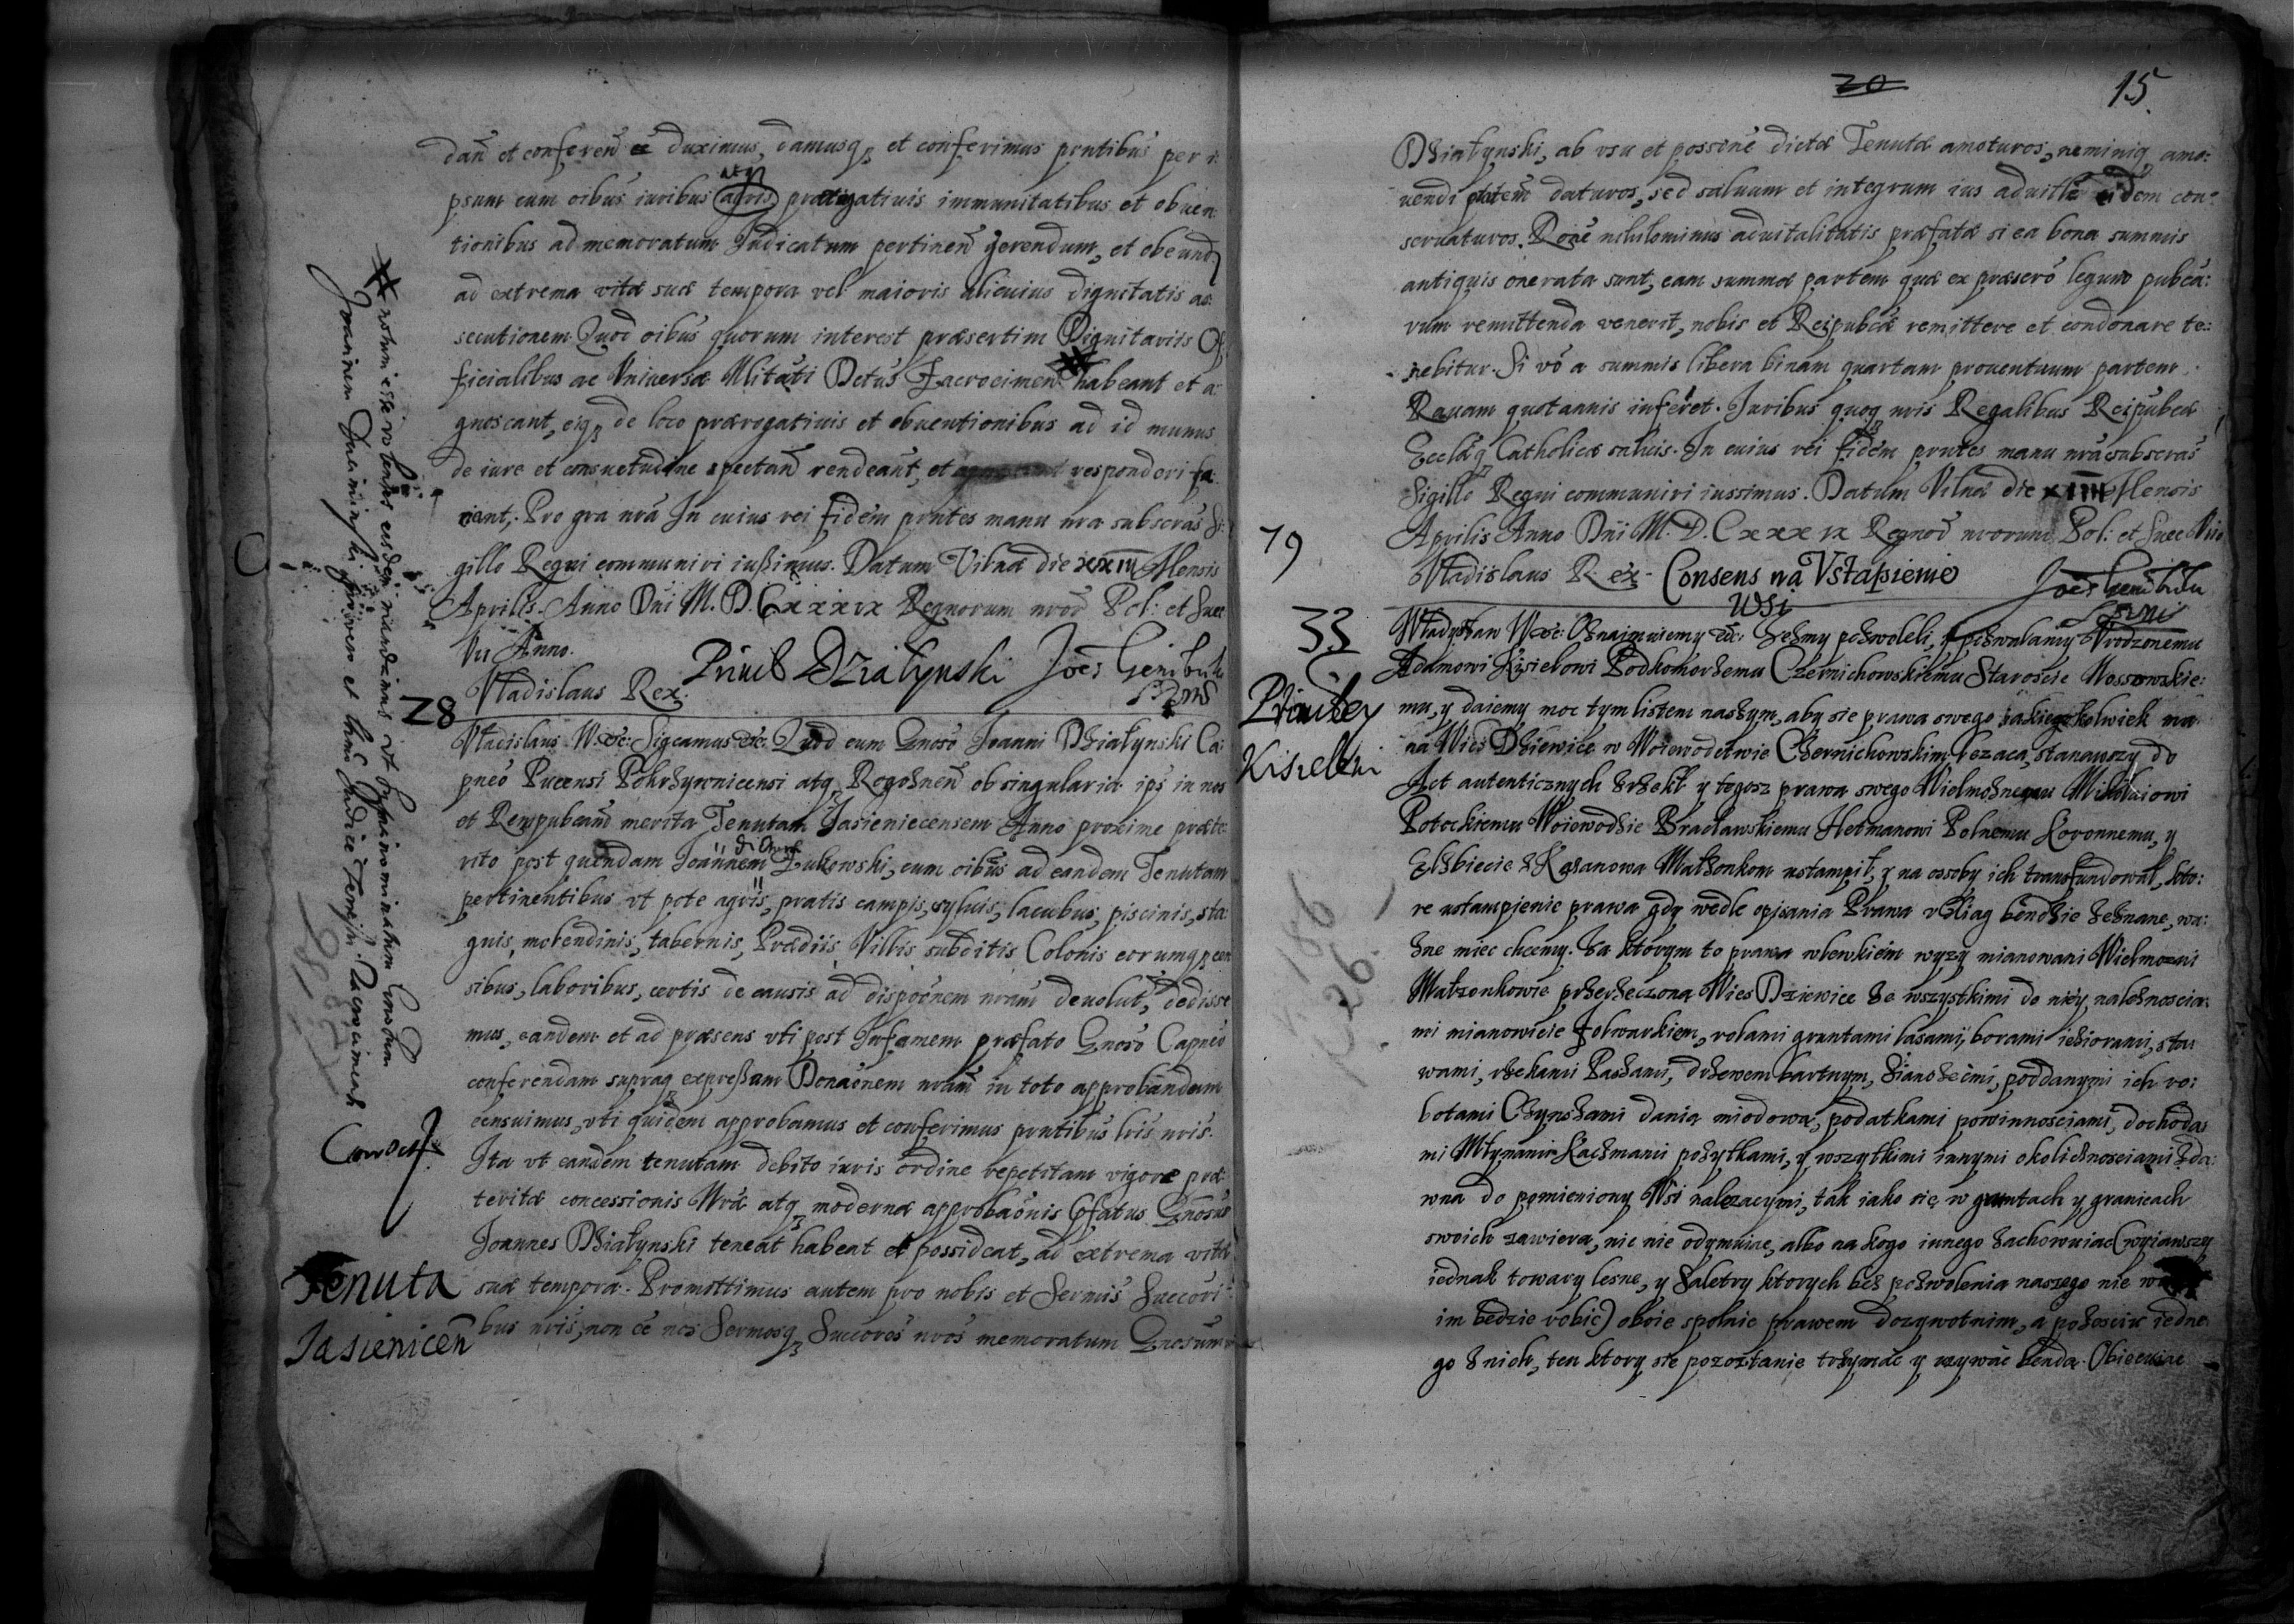 dan̄ et conferen̄ duximus, damusq3 et conferimus pntibus per i
psum cum oibus iuribus agris atq3 prærogatiuis immunitatibus et obuen
tionibus ad memoratum Judicatum pertinen̄ gerendum, et obeund
ad extrema vitæ suæ tempora vel maioris alicuius dignitatis as
secutionem. Quod oibus quorum interest præsertim Dignitariis Of
ficialibus ac Vniuersæ Nobilitati habeant et a
gnoscant, eiq3 de loco prærogatiuis et obuentionibus ad id munus
de iure et consuetudine spectan̄ rendeant, et responderi fa
ciant. Pro gra nra In cuius rei fidem pntes manu nra subscras Si
gillo Regni communiri iussimus. Datum Vilnæ die xxiii Mensis
Aprilis. Anno Dni M.D.Cxxxix Regnorum nrōr Pol: et Suec
Vii Anno.
Vladislaus Rex.
Priuil Działynski Joēs
28
Vladislaus W. etc: Sigcamus etc: Quod cum Gnoso Joanni Dzialynski Ca:
pneo Pucensi Pokrzywnicensi atq3 Rogoznen̄ ob singularia ips in nos
et Rempubcam merita Tenutam Jasieniecensem Anno proxime præte
rito post quendam Joannem Zukowski, cum oibus ad eandem Tenutam
pertinentibus vt pote agris, pratis campis, syluis, lacubus, piscinis, sta
guis, molendinis, tabernis, Prædiis, Villis subditis Colonis eorumq3 cen
sibus, laboribus, certis de causis ad disposnem nram deuolut, dedisse
mus, eandem et ad præsens vti post Infamem præfato Gnoso Capneo
conferendam supraq3 expressam Donaonem nram in toto approbandam
censuimus, vti quidem approbamus et conferimus pntibus lris nris.
Ita vt eandem tenutam debito iuris ordine repetitam vigore præ
teritæ concessionis Nræ atq3 modernæ approbaonis Pfatus Gnosus
Joannes Dzialynski teneat habeat et possideat, ad extrema vitæ
suæ tempora. Promittimus autem pro nobis et Sermis Succori
bus nris, non ee nos Sermosq3 Succores nros memoratum Gnosum
Tenuta
Jasienicen̄
20
15
Dzialynski, ab vsu et possene dictæ Tenutæ amoturos, neminiq3 amo:
uendi ptatem daturos, sed saluum et integrum ius aduitle eidem con:
seruaturos. Rone nihilominus aduitalitatis præfatæ si ea bona summis
antiquis onerata sunt, eam summæ partem quæ ex præscro legum pubca:
rum remittenda venerit, nobis et Reipubcæ remittere et condonare te:
nebitur. Si vo a summis libera binam quartam prouentuum partem
Rauam quotannis inferet. Juribus quoq3 nris Regalibus Reipubcæ
Ecclæq3 Catholicæ saluis. In cuius rei fidem pntes manu nra subscras
Sigillo Regni communiri iussimus. Datum Vilnæ die Mensis
Aprilis Anno Dni M.D.Cxxxix Regnor nrorum Pol: et Suec
Vladislaus Rex
Consens na Vstąpienie
Wsi
33
Władysław W etc: Oznajmuiemy etc: Zesmy pozwoleli, y pozwalamy Vrodzonemu
Adamowi Kisielowi Podkomorzemu Czernichowskiemu Staroście Nossowskie:
mu, y daiemy moc tym listem naszym, aby sie prawa swego iakiegozkolwiek na
na Wies Dziewice w Woiewodztwie Czernichowskim lezaca, stanawszy do
Act autenticznych zrzekł y togosz prawa swego Wielmoznemu Mikolaiowi
Potockiemu Woiewodzie Bracławskiemu Hetmanowi Polnemu Koronnemu, y
Elzbiecie z Kazanowa Małzonkom ustampił, y na osoby ich transfundował, kto:
re ustampienie prawa gdy wedle opisania Prawa bendzie zeznane, wa:
zne miec chcemy. Za ktorym to prawa wlewkiem wyzy mianowani Wielmozni
Małzonkowie przerzeczona Wies Dziewice ze wszystkimi do niey naleznoscia:
mi mianowicie folwarkiem, rolami gruntami lasami, borami ieziorami, sta:
wami, rzekami Paszami, drzewem bartnym, sianozeciami, poddanymi ich ro:
botami Czynszami dania miodowa, podatkami powinnosciami, dochoda
mi Młynami Kaczmami pozytkami, y wszytkimi innymi okolicznosciami zda:
wna do pomieniony Wsi nalezacymi, tak iako się w gruntach y granicach
swoich zawiera, nic nie odymuiac, albo na kogo innego zachowuiac (wyiawszy
iednak towary lesne, y Saletry ktorych bez pozwolenia naszego nie
im bedzie robic) oboie spolnie prawem dozywotnim, a po zesciu iedne
go z nich, ten ktory sie pozostanie trzymac y uzywac benda. Obiecuiac